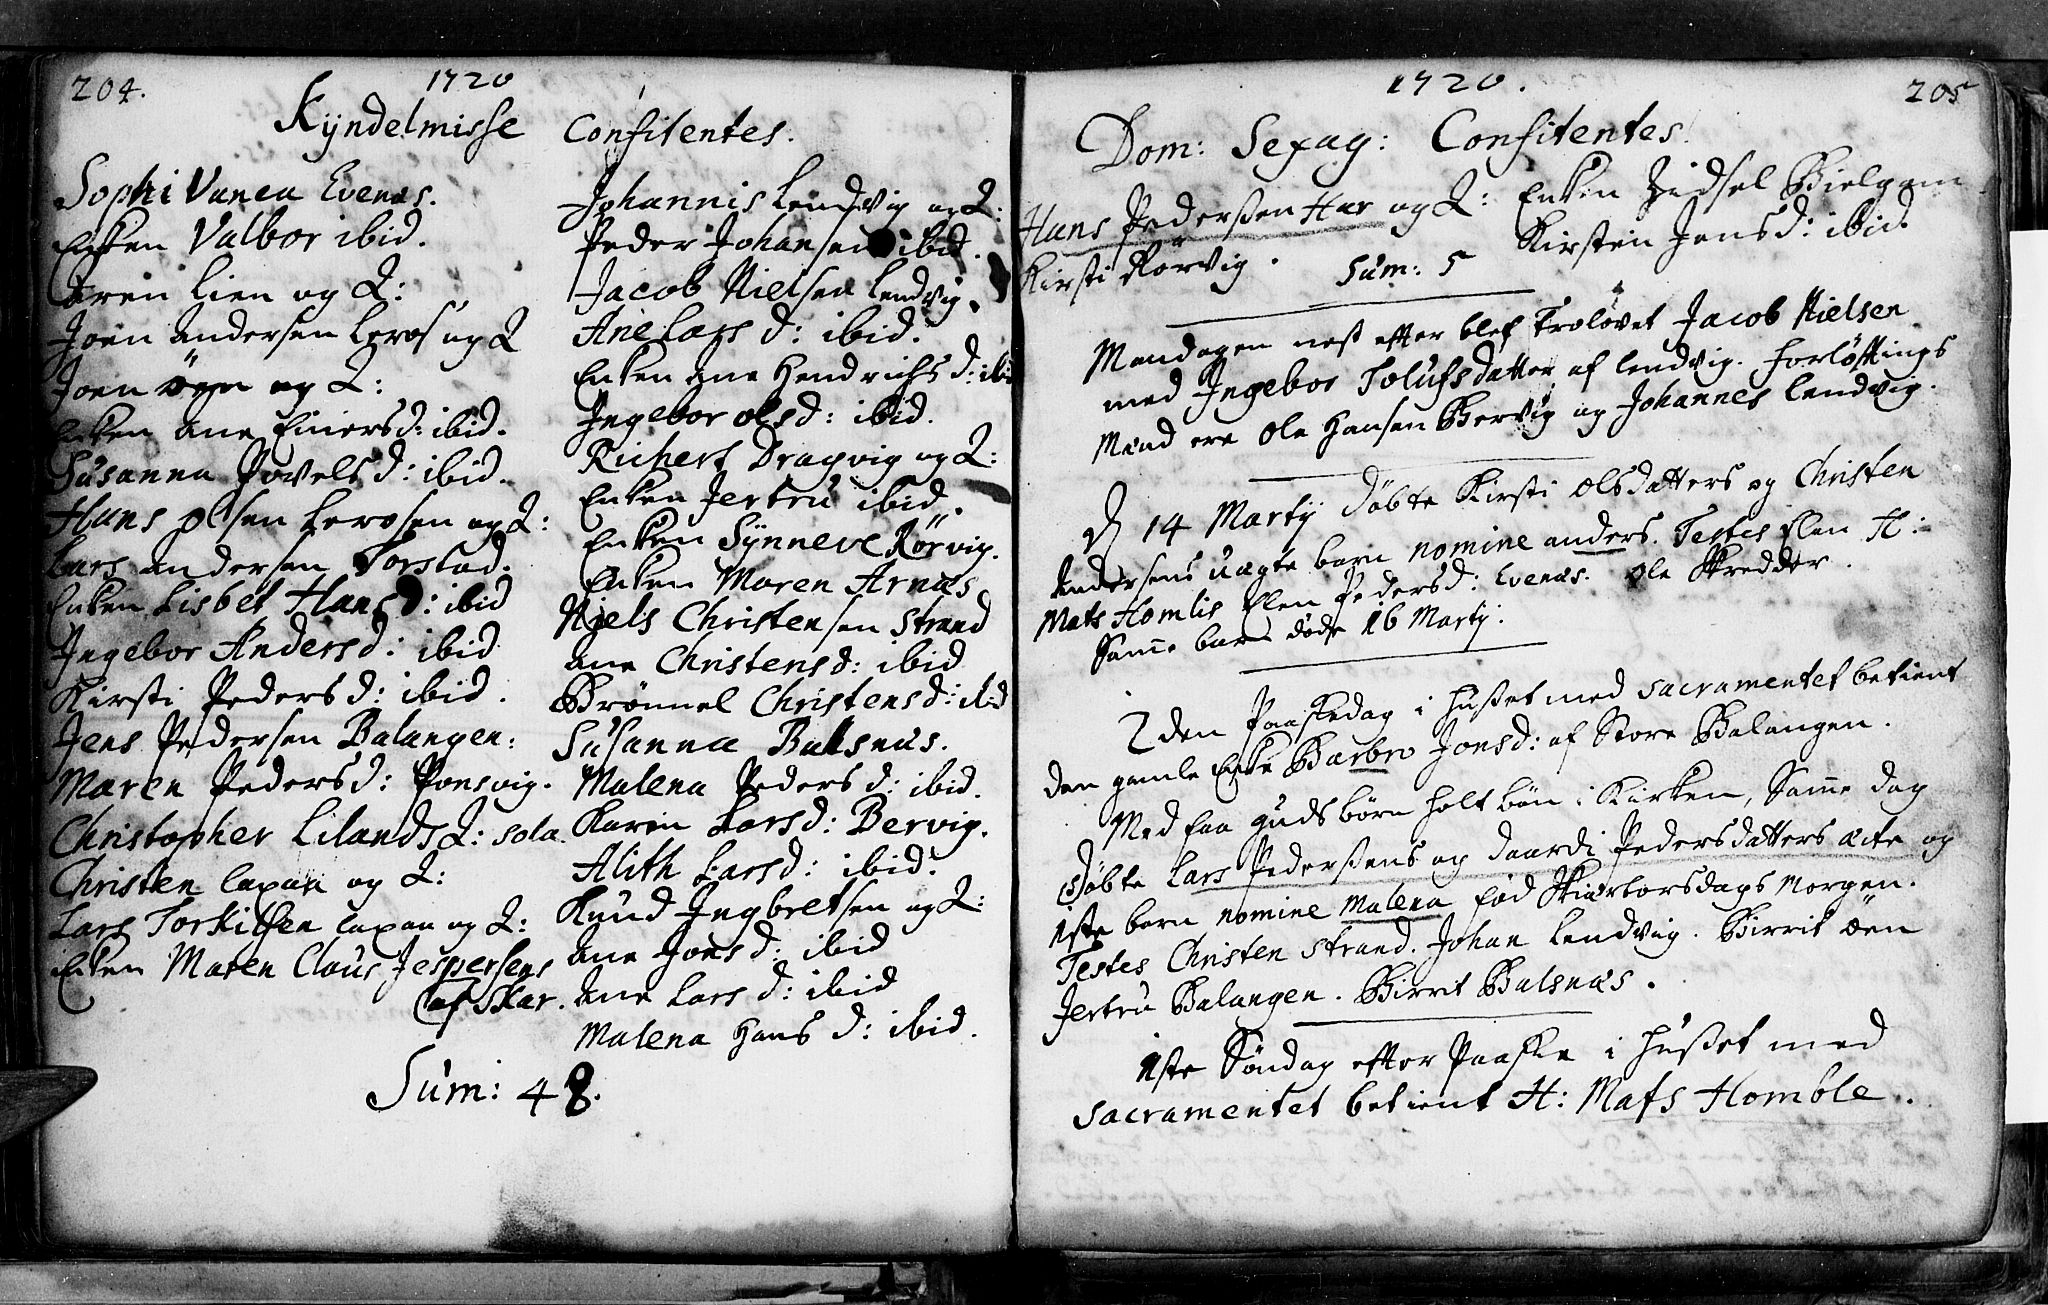 204.
1720
Kyndelmisse Confitentes.
Sophi Vanea Evenæs.
Enken Valbor ibid.
Aren Lien og Q:
Joen Andersen Leros og Q
Joen öyen og Q:
Enken Ane Einersd: ibid.
Susanna Povelsd: ibid.
Hans Olsen Lerosen og Q:
Lars Andersen Torstad.
Enken Lisbet Hansd: ibid
Ingebor Andersd: ibid
Kirsti Pedersd: ibid.
Jens Pedersen Balangen:
Maren Pedersd: Ponsvig.
Christopher Lilands Q: sola.
Christen Laxaa og Q:
Lars Torkilsen Laxaa og Q:
Enken Maren Claus Jespersens
af Skar.
Johannis Lendvig og Q:
Peder Johansen ibid.
Jacob Nielsen Lendvig.
Ane Larsd: ibid.
Enken Ane Hendrichsd: ibid
Ingebor Olsd: ibid.
Richert Dragvig og Q:
Enken Jertru ibid.
Enken Synneve Rörvig.
Enken Maren Arnæs
Niels Christensen Strand
Ane Christensd: ibid
Brönnel Christensd: ibid
Susanna Balsnæs.
Malena Pedersd: ibid.
Karen Larsd: Bervig.
Alith Larsd: ibid.
Knud Ingbretsen og Q:
Ane Jonsd: ibid
Ane Larsd: ibid
Malena Hansd: ibid.
Sum: 48.
1720.
205
Dom: Sexag: Confitentes.
Hans Pederssen Har og Q: Enken Zidsel Bielgam
Kirsti Korvig. Kirsten Jensd: ibid.
Sum: 5
Mandagen nest efter blef Troloved Jacob Nielsen
med Ingebor Tolufsdatter af Lendvig. Forløftings
Mænd ere Ole Hansen Bervig og Johannes Lendvig.
D 14 Martij Döbte Kirsti Olsdatters og Christen
Andersens uægte barn nomine Anders. Testes Elen H:
Mats Homlis Elen Pedersd: Evenæs. Ole Skredder.
Samme barn döde 16 Martij.
2den Paaskedag i Husset med Sacramentet betient
den gamle Enke Barbro Jonsd: af Store Balangen.
Med faa Guds börn holt bön i Kirken, Samme dag
Döbte Lars Pederssens og Daardi Pedersdatters ækte og
1ste barn nomine Malena föd Skiærtorsdags Morgen.
Testes Christen Strand. Johan Lendvig. Birrit öen
Jertru Balangen. Birrit Balsnæs.
1ste Söndag efter Paaske i Husset med
Sacramentet betient H: Mats Homble.